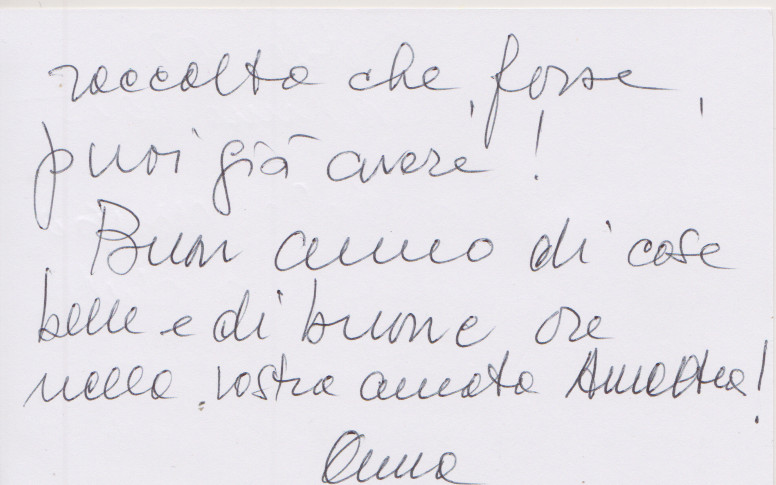 raccolta che, forse,
puoi già avere!
Buon anno di cose
belle e di buone ore
nella vostra amata Amaltea!
Anna